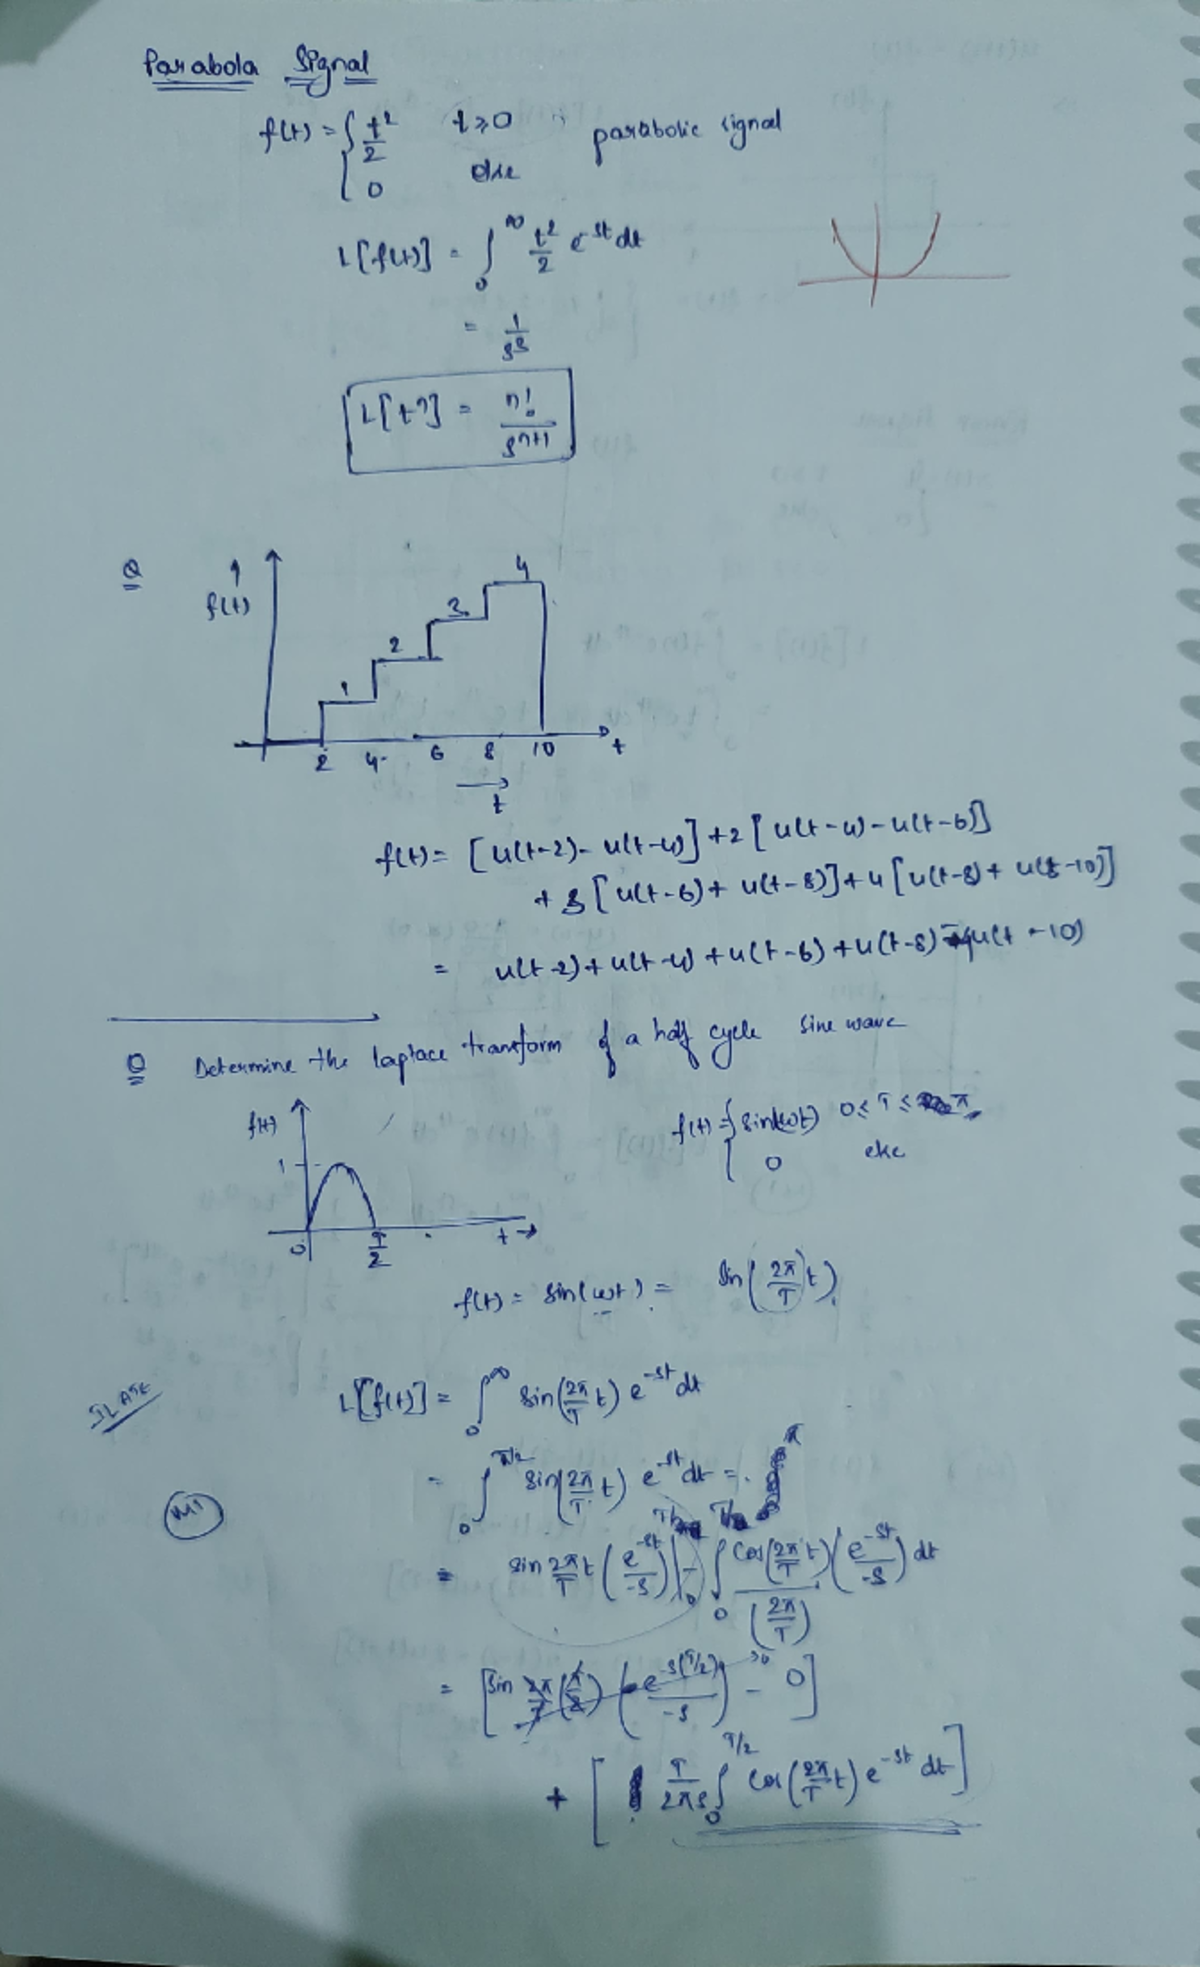 Parabola Signal
f(t) = { t²/2   t ≥ 0 ; parabolic signal
0   else
L[f(t)] = ∫₀^∞ t²/2 e^-st dt
= 1/s³
L[tⁿ] = n!/sⁿ⁺¹
Q
f(t)
1 2 3 4
2 4 6 8 10 t
t
f(t) = [u(t-2) - u(t-4)] + 2[u(t-4) - u(t-6)]
+ 3[u(t-6) + u(t-8)] + 4[u(t-8) + u(t-10)]
= u(t-2) + u(t-4) + u(t-6) + u(t-8) - 4u(t-10)
Q Determine the laplace transform of a half cycle sine wave
f(t)
f(t) = { sin(ωt)   0 ≤ T ≤ π
0   else
1
0 T/2 t →
f(t) = sin(ωt) = Sin(2π/T t)
ILATE
L[f(t)] = ∫₀^∞ sin(2π/T t) e^-st dt
= ∫₀^T/2 sin(2π/T t) e^-st dt =
M1
= sin 2π/T t (e^-st/-s)|₀^T/2 - ∫₀^T/2 cos(2π/T t)/(2π/T) (e^-st/-s) dt
= [sin 2π/T (T/2) (e^-s(T/2)/-s) - 0]
+ [T/2πs ∫₀^T/2 cos(2π/T t) e^-st dt]